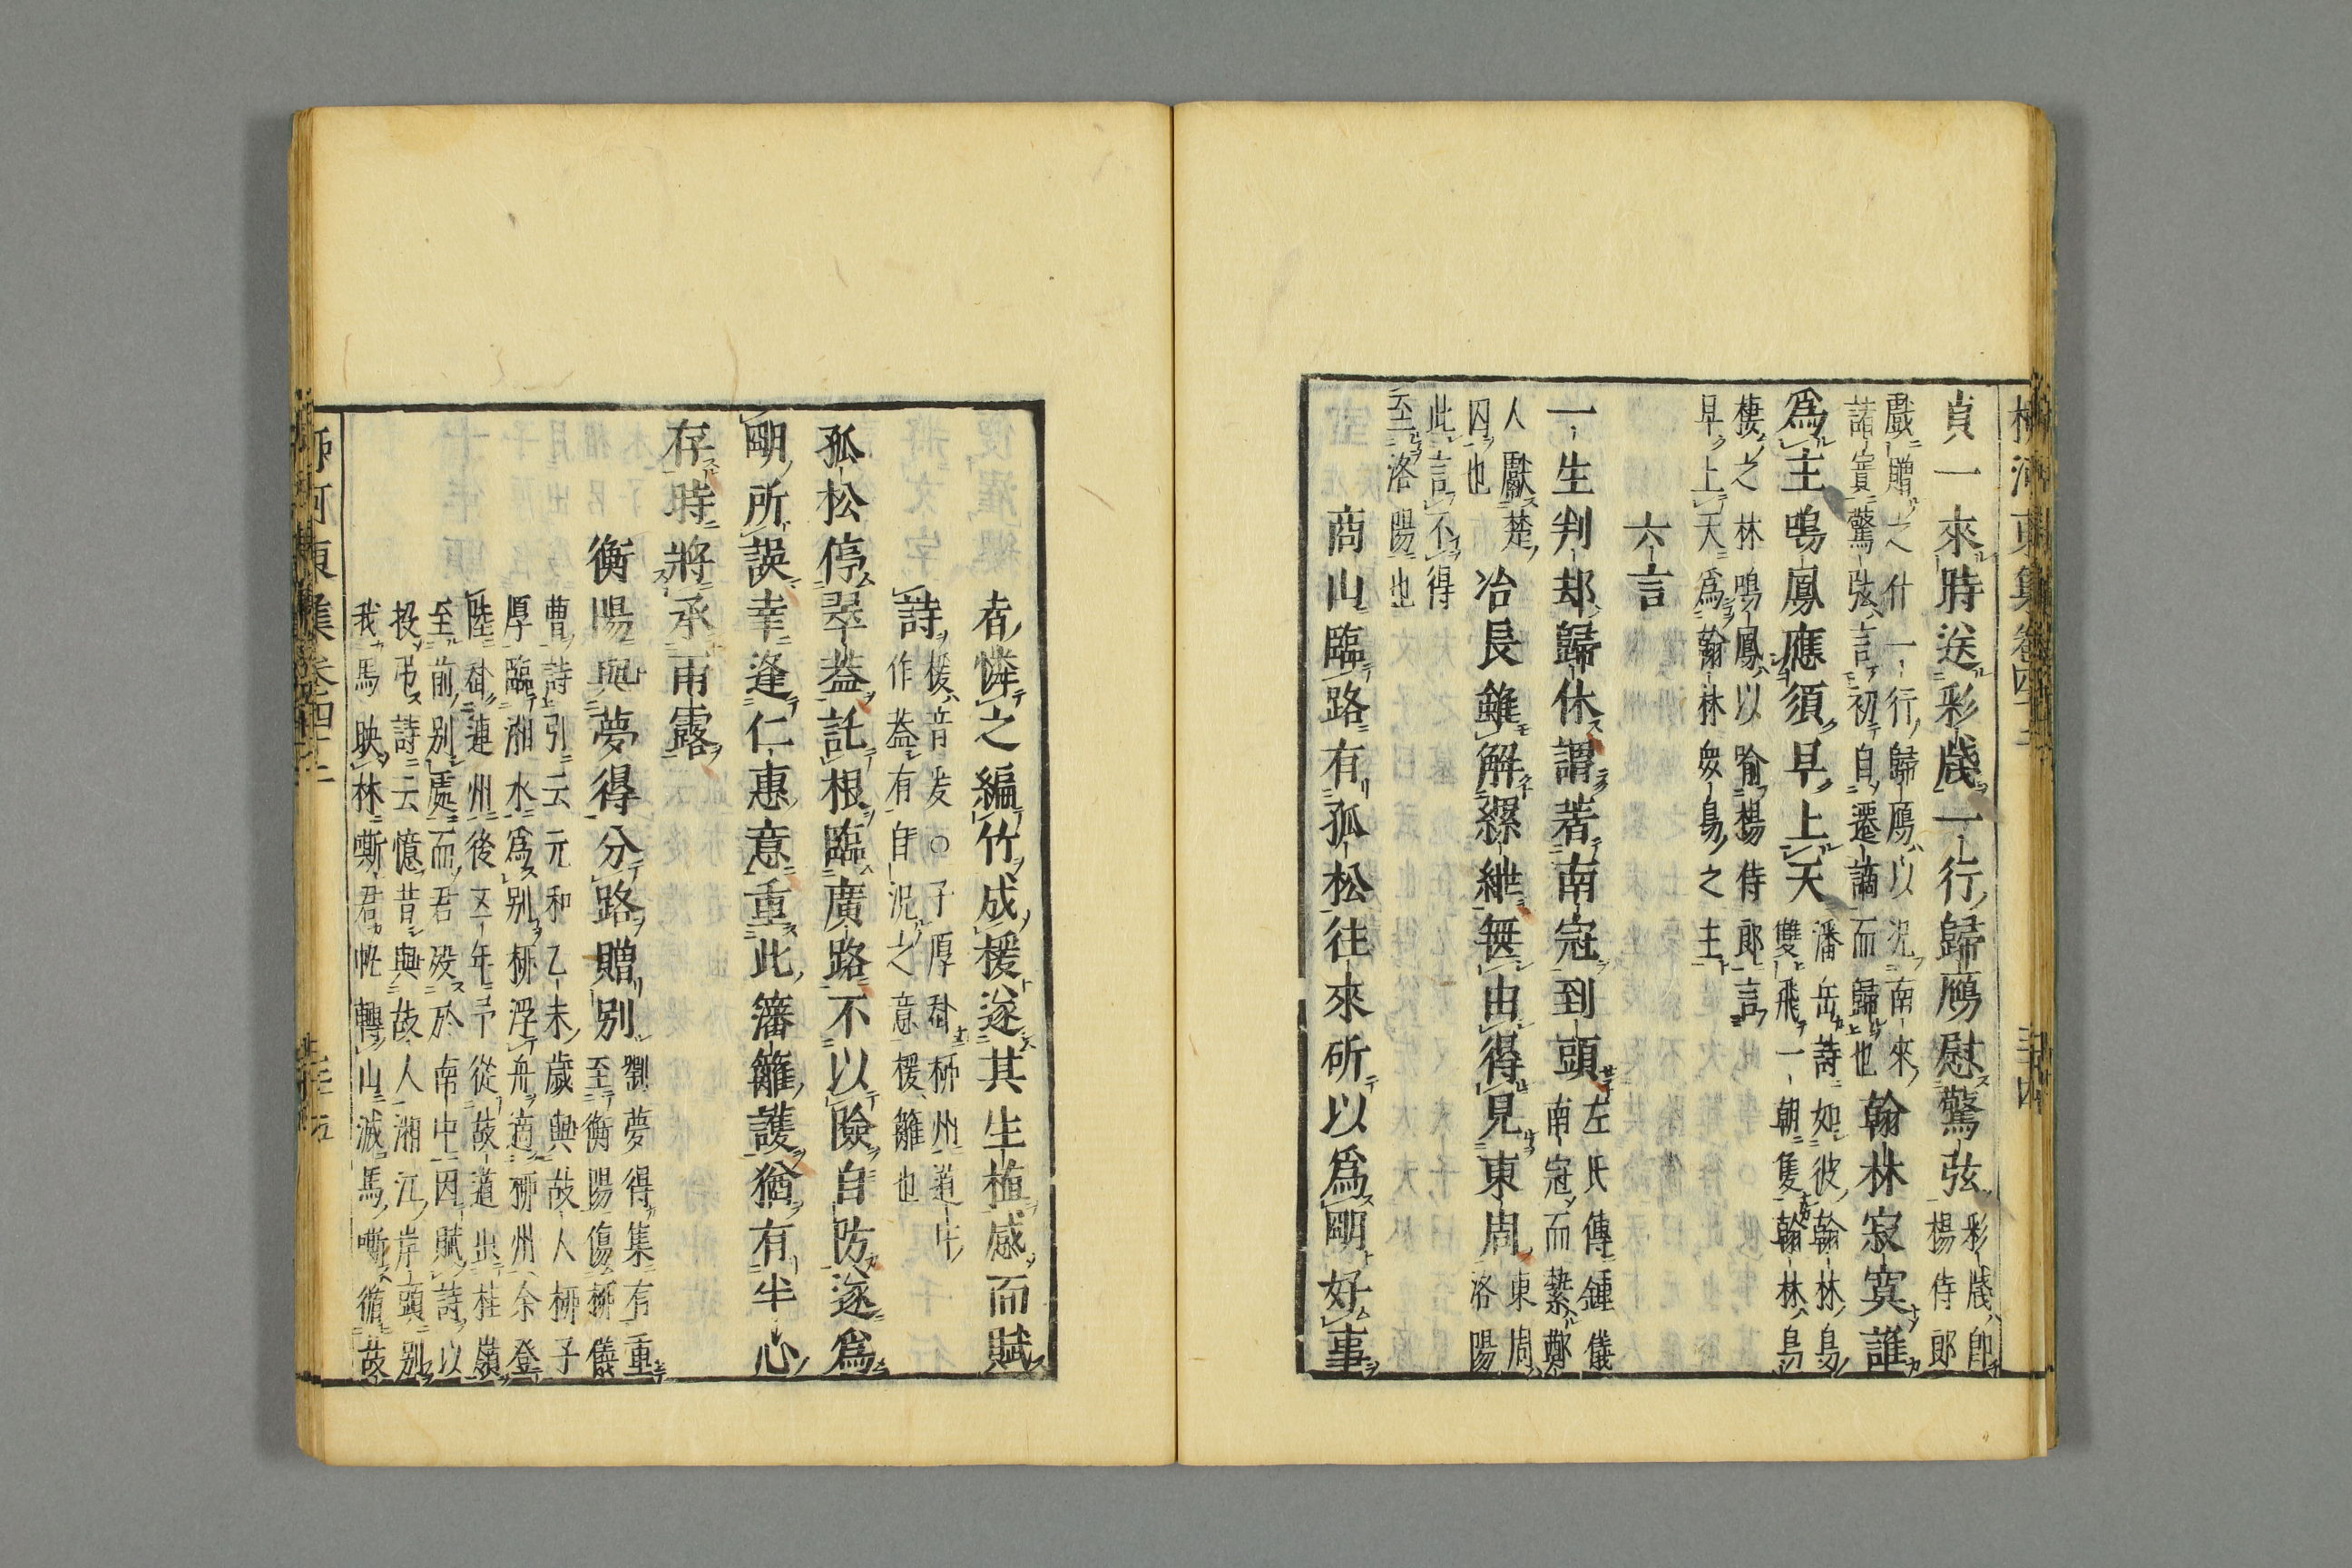 柳河東集卷四十二 三十四
貞一來時送彩牋一行歸鴈慰驚弦
彩牋即
楊侍郎
戲贈之什一行歸鴈以況南來
諸賓驚弦言初自遷謫而歸也
翰林寂寞誰
爲主鳴鳳應須早上天
潘岳詩如彼翰林鳥
雙飛一朝隻翰林鳥
棲之林鳴鳳以喻楊侍郎言
早上天爲翰林衆鳥之主
六言
一生判却歸休謂若南冠到頭
左氏傳鍾儀
南冠而縶鄭
人獻楚
囚也
冶長雖解縲紲無由得見東周
東周
洛陽
此言不得
至洛陽也
商山臨路有孤松往來斫以爲明好事
者憐之編竹成援遂其生植感而賦
詩
援音爰○子厚赴柳州道中
作蓋有自況之意援籬也
孤松停翠蓋託根臨廣路不以險自防遂爲
明所誤幸逢仁惠意重此藩籬護猶有半心
存時將承雨露
衡陽與夢得分路贈別
劉夢得集有重
至衡陽傷柳儀
曹詩引云元和乙未歲與故人柳子
厚臨湘水爲別柳浮舟適柳州余登
陸赴連州後五年予從故道出桂嶺
至前別處而君歿於南中因賦詩以
投弔詩云憶昔與故人湘江岸頭別
我馬映林嘶君帆轉山滅馬嘶循故
柳河東集卷四十二 三十五